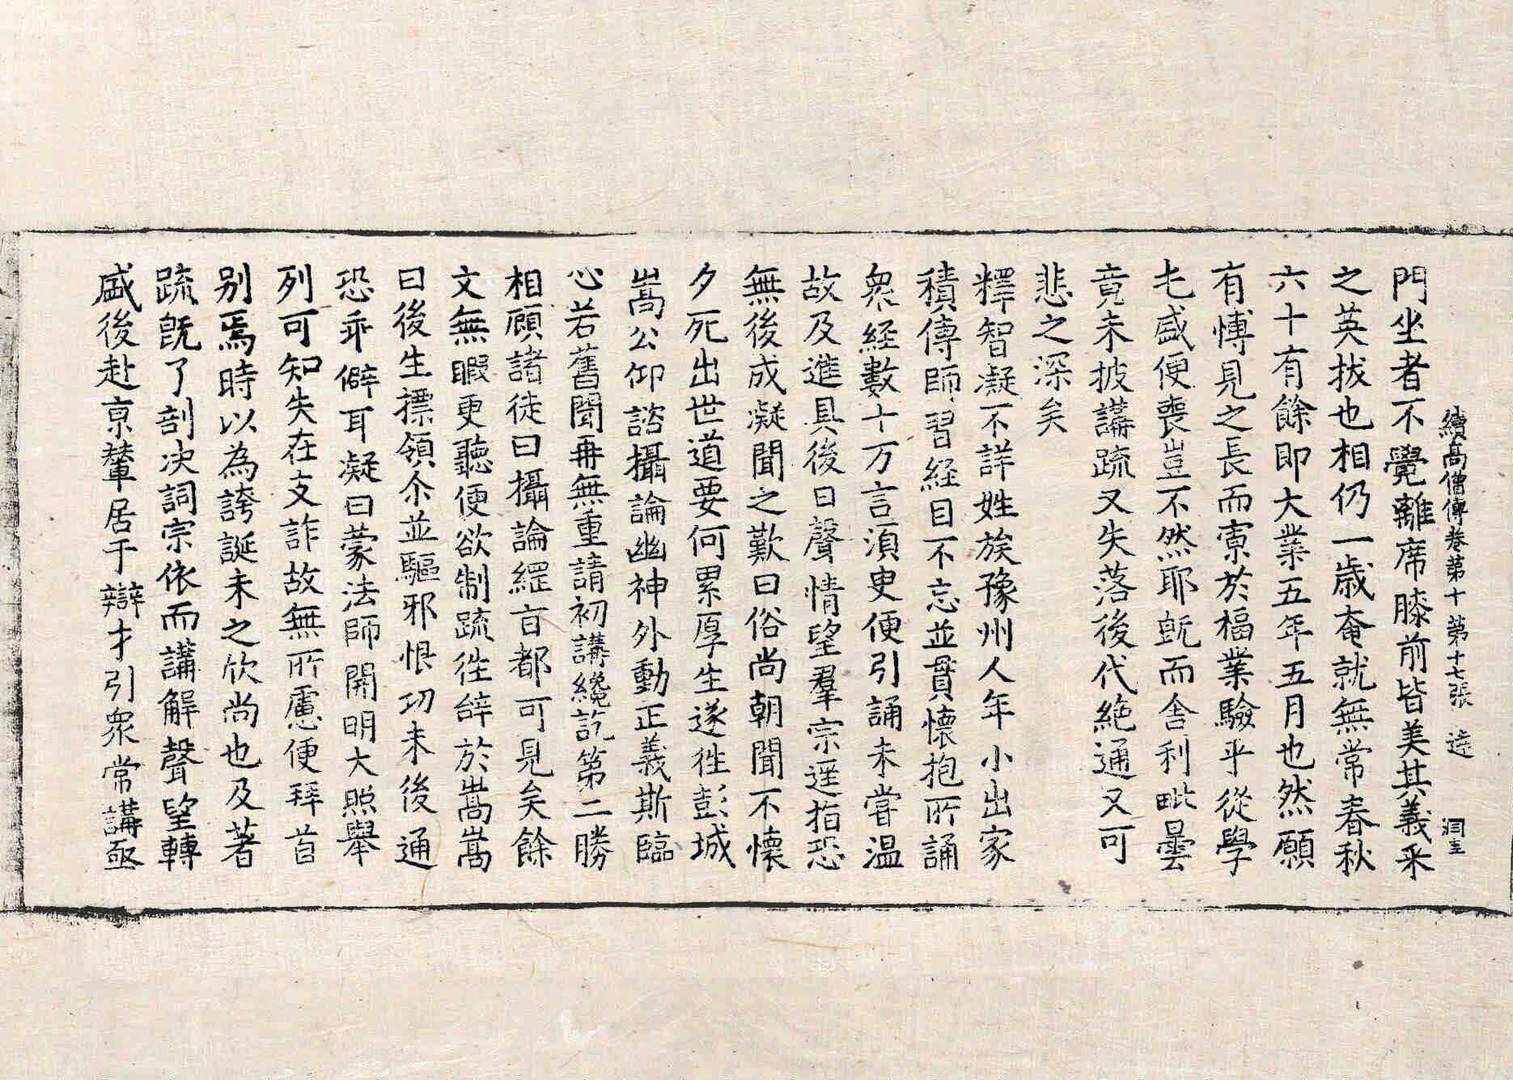 續高僧傳卷第十 第十七張 達 洞主
門坐者不覺離席膝前皆美其義采
之英拔也相仍一歳奄就無常春秋
六十有餘即大業五年五月也然願
有愽見之長而寡於福業驗乎從學
盛便喪豈不然耶旣而舍利毗曇
竟未披講䟽又失落後代絶通又可
悲之深矣
釋智凝不詳姓族豫州人年小出家
積傳師習經目不忘並貫懷抱所誦
衆経數十万言湏臾便引誦未甞温
故及進具後日聲情望羣宗遅指恐
無後成凝聞之歎曰俗尚朝聞不懷
夕死出世道要何累厚生遂徃彭城
嵩公仰諮攝論幽神外動正義斯臨
心若舊聞再無重請初講纔訖第二勝
相顧諸徒曰攝論綱旨都可見矣餘
文無暇更聽便欲制䟽徃辝於嵩嵩
曰後生摽領尒並驅邪恨功未後通
恐乖僻耳凝曰蒙法師開明大照舉
列可知失在支詐故無所慮便拜首
别焉時以為誇誕未之欣尚也及著
䟽旣了剖决詞宗依而講解聲望轉
盛後赴京輦居于辯才引衆常講亟